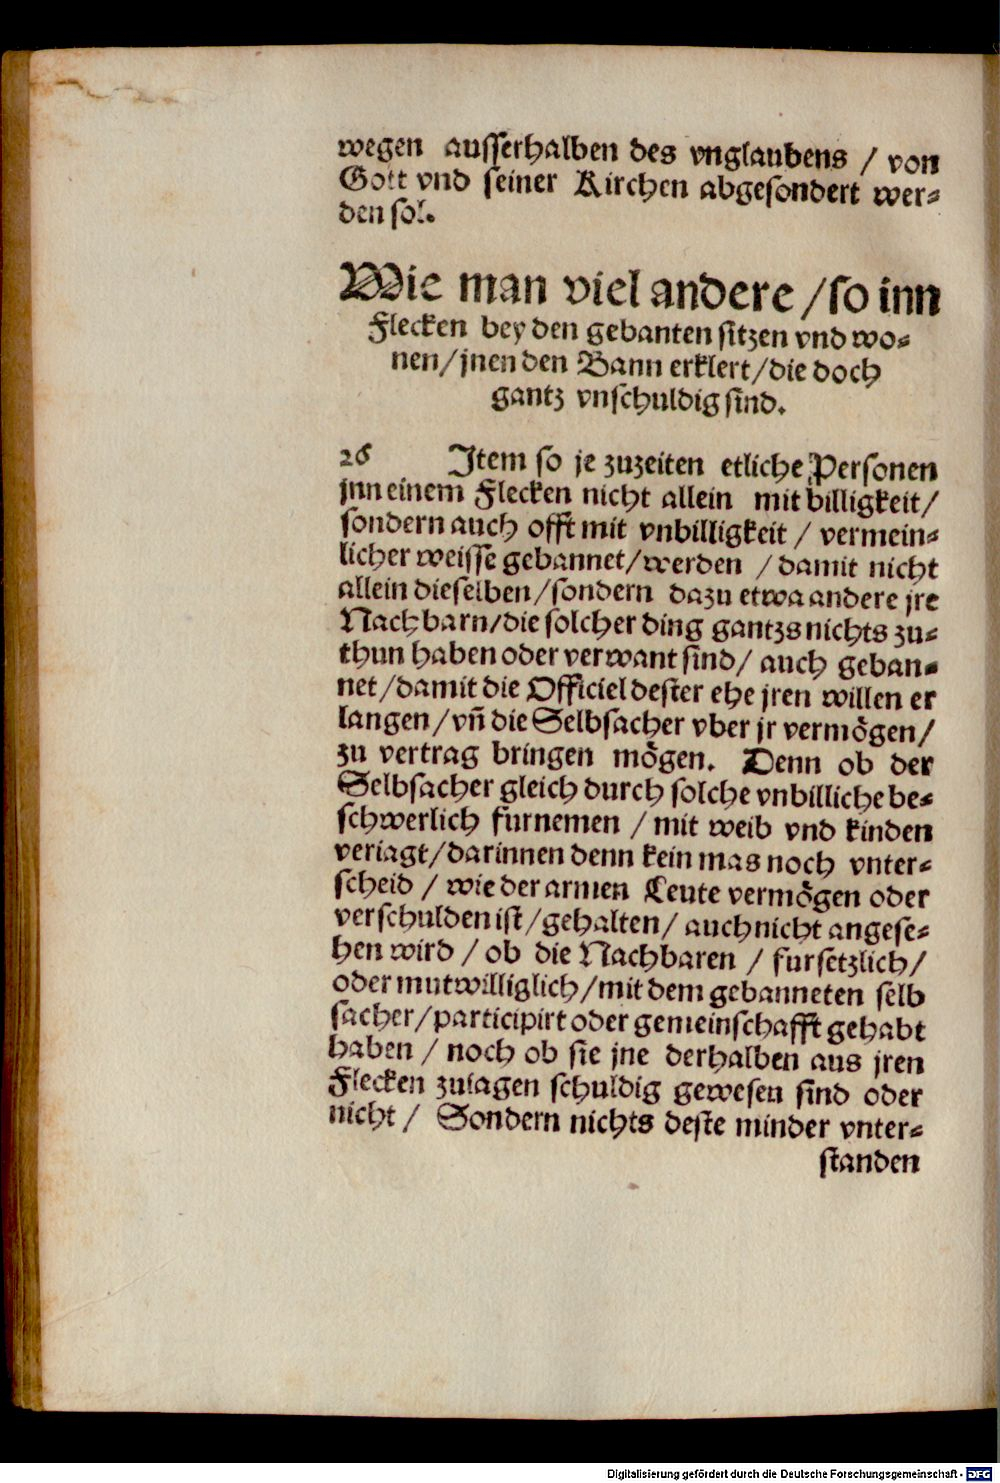 wegen ausserhalben des vnglaubens / von
Gott vnd seiner Kirchen abgesondert wer⸗
den sol.
Wie man viel andere / so inn
Flecken bey den gebanten sitzen vnd wo⸗
nen / jnen den Bann erklert / die doch
gantz vnschuldig sind.
26 Item so je zuzeiten etliche Personen
jnn einem Flecken nicht allein mit billigkeit /
sondern auch offt mit vnbilligkeit / vermein⸗
licher weisse gebannet / werden / damit nicht
allein dieselben / sondern dazu etwa andere jre
Nachbarn / die solcher ding gantzs nichts zu⸗
thun haben oder verwant sind / auch geban⸗
net / damit die Officiel dester ehe jren willen er
langen / vn̄ die Selbsacher vber jr vermögen /
zu vertrag bringen mögen. Denn ob der
Selbsacher gleich durch solche vnbilliche be⸗
schwerlich furnemen / mit weib vnd kinden
veriagt / darinnen denn kein mas noch vnter⸗
scheid / wie der armen Leute vermögen oder
verschulden ist / gehalten / auch nicht angese⸗
hen wird / ob die Nachbaren / fursetzlich /
oder mutwilliglich / mit dem gebanneten selb
sacher / participirt oder gemeinschafft gehabt
haben / noch ob sie jne derhalben aus jren
Flecken zuiagen schuldig gewesen sind oder
nicht / Sondern nichts deste minder vnter⸗
standen
Digitalisierung gefördert durch die Deutsche Forschungsgemeinschaft - DFG